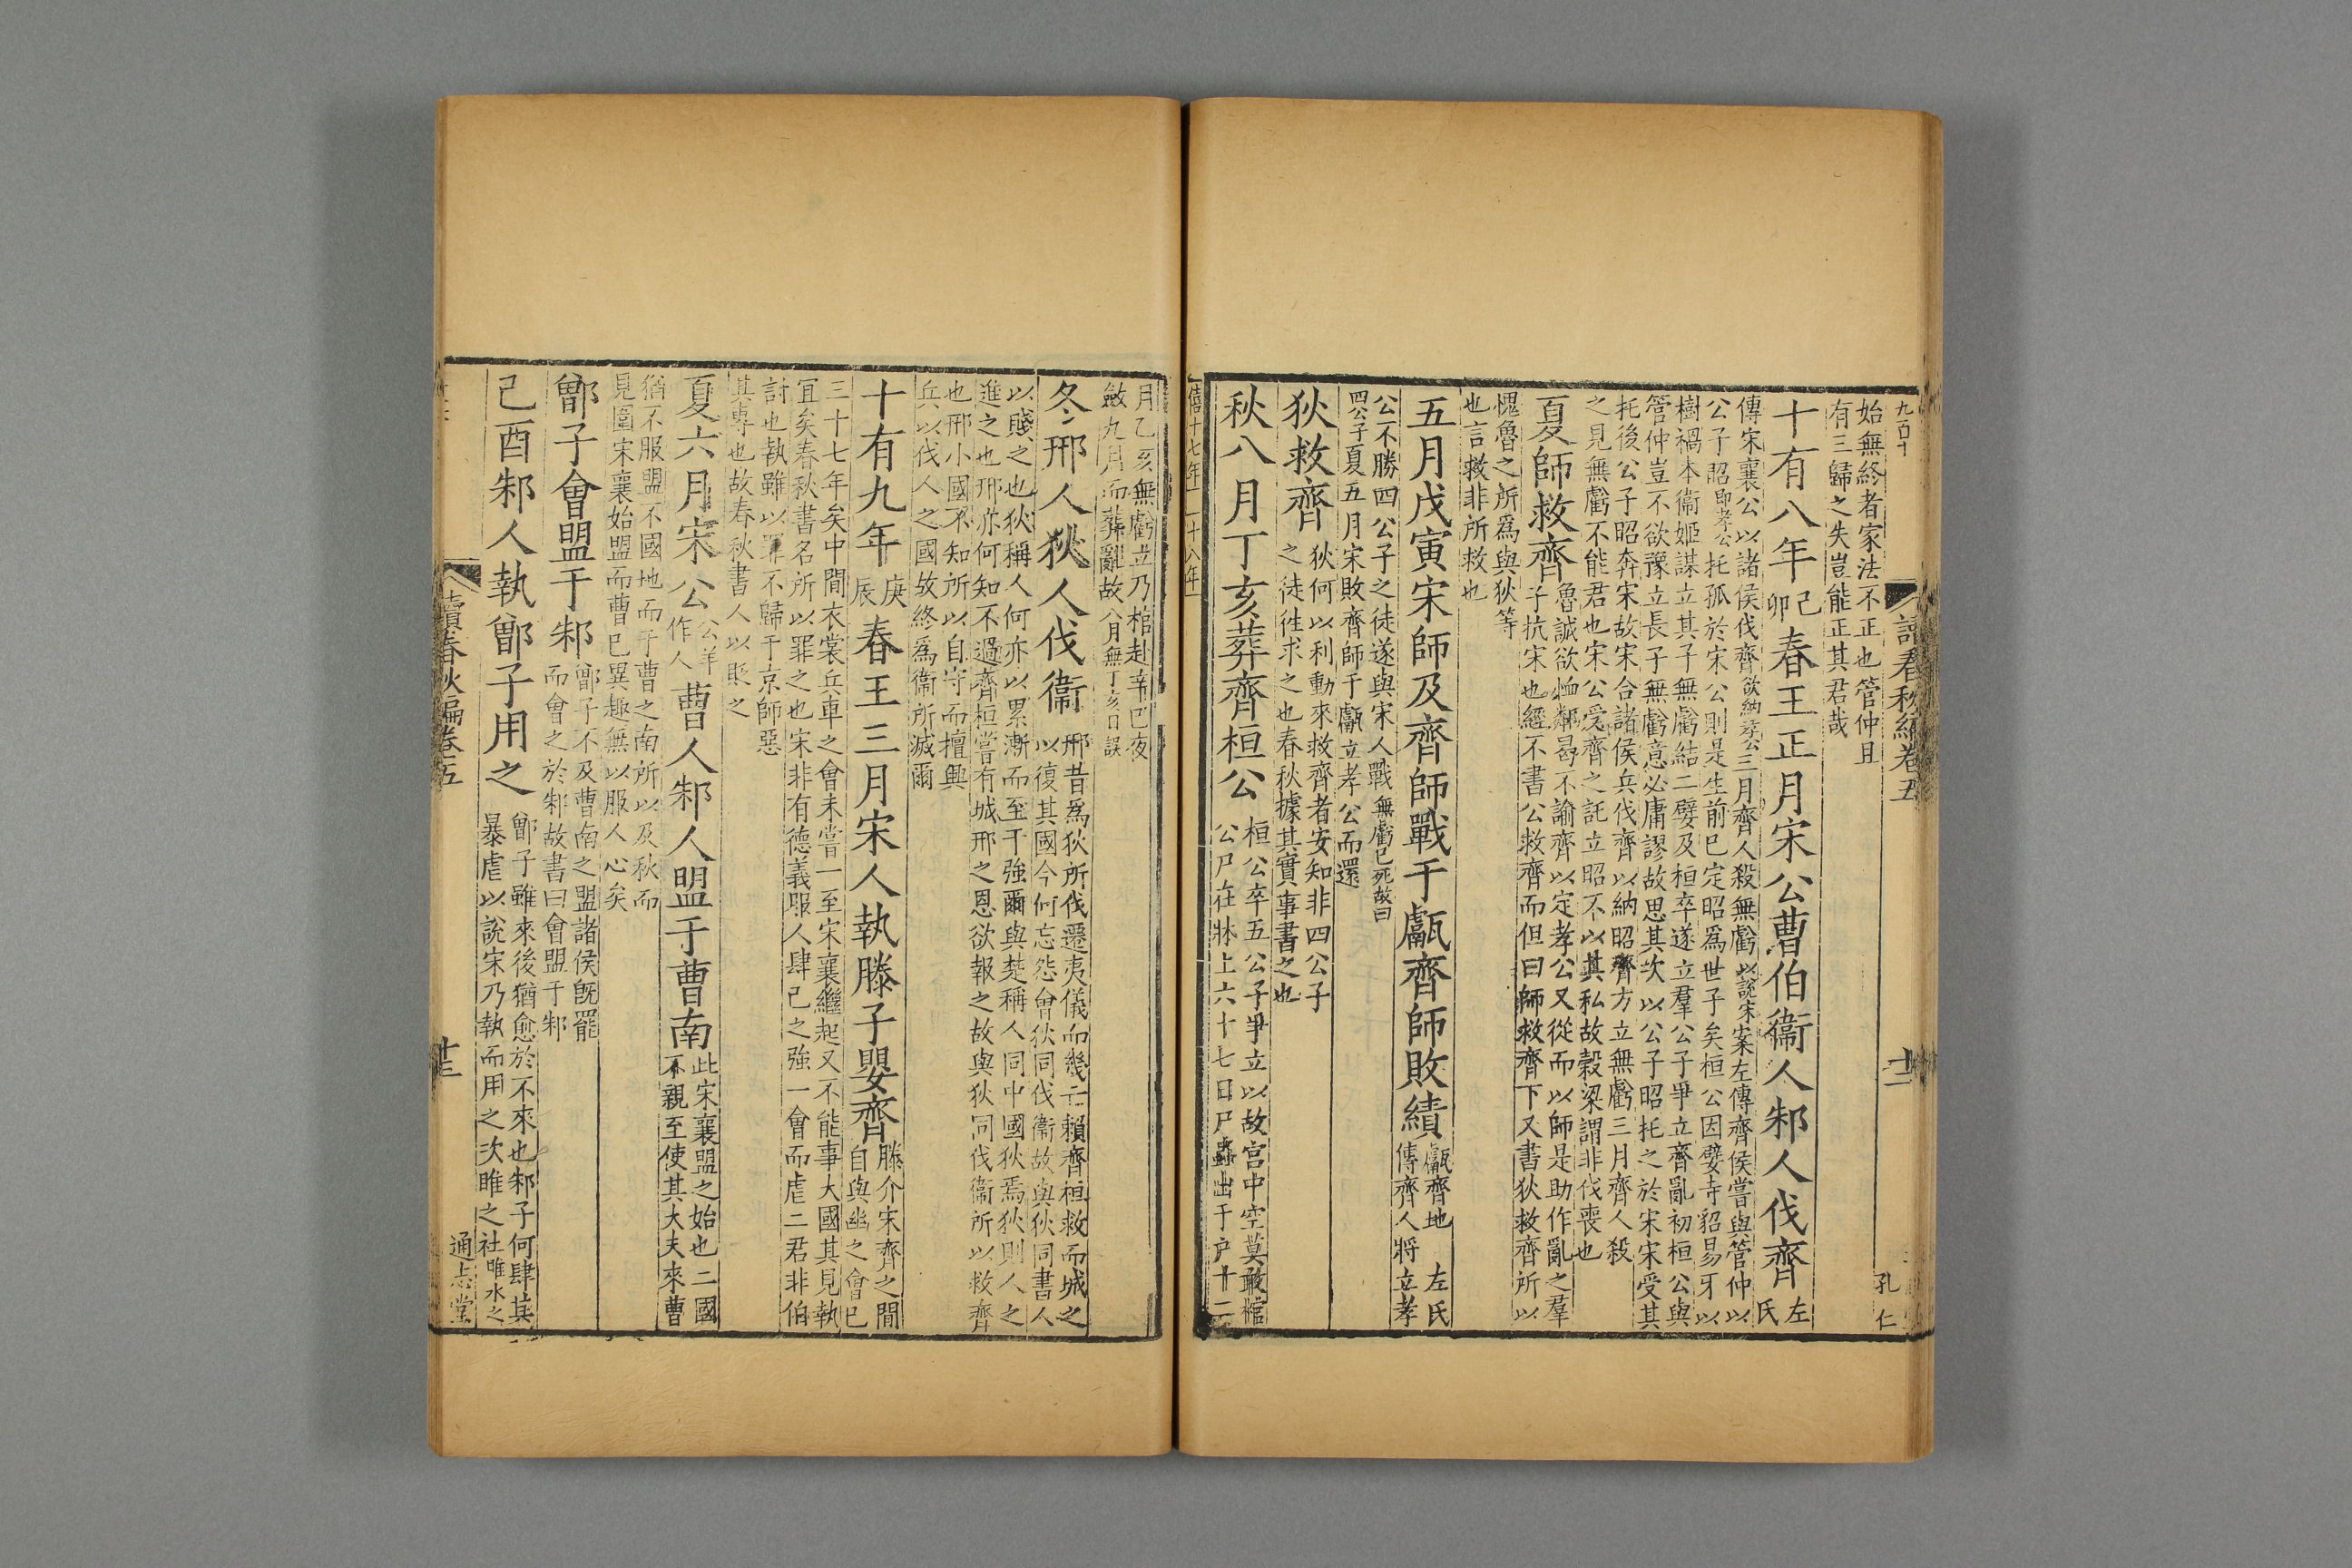 九百十
讀春秋編卷五
十二
孔仁
始無終者家法不正也管仲且
有三歸之失豈能正其君哉
十有八年己卯春王正月宋公曹伯衞人邾人伐齊左氏
傳宋襄公以諸侯伐齊欲納孝公三月齊人殺無虧以說宋案左傳齊侯嘗與管仲以
公子昭即孝公托孤於宋公則是生前已定昭爲世子矣桓公因嬖寺貂易牙以
樹禍本衞姬謀立其子無虧結二嬖及桓卒遂立羣公子爭立齊亂初桓公與
管仲豈不欲豫立長子無虧意必庸謬故思其次以公子昭托之於宋宋受其
托後公子昭奔宋故宋合諸侯兵伐齊以納昭齊方立無虧三月齊人殺
之見無虧不能君也宋公受齊之託立昭不以其私故穀梁謂非伐喪也
夏師救齊魯誠欲恤鄰曷不諭齊以定孝公又從而以師是助作亂之羣
子抗宋也經不書公救齊而但曰師救齊下又書狄救齊所以
愧魯之所爲與狄等
也言救非所救也
五月戊寅宋師及齊師戰于甗齊師敗績甗齊地 左氏
傳齊人將立孝
公不勝四公子之徒遂與宋人戰無虧已死故曰
四公子夏五月宋敗齊師于甗立孝公而還
狄救齊狄何以利動來救齊者安知非四公子
之徒徃求之也春秋據其實事書之也
秋八月丁亥葬齊桓公桓公卒五公子爭立以故宮中空莫敢棺
公尸在牀上六十七日尸蟲出于户十二
僖十七年 十八年
月乙亥無虧立乃棺赴辛巳夜
斂九月而葬亂故八月無丁亥日誤
冬邢人狄人伐衞邢昔爲狄所伐遷夷儀而幾亡賴齊桓救而城之
以復其國今何忘怨會狄同伐衞故與狄同書人
以賤之也狄稱人何亦以累漸而至于強爾與楚稱人同中國狄焉狄則人之
進之也邢亦何知不過齊桓嘗有城邢之恩欲報之故與狄同伐衞所以救齊
也邢小國不知所以自守而擅興
兵以伐人之國故終爲衞所滅爾
十有九年庚辰春王三月宋人執滕子嬰齊滕介宋齊之間
自與幽之會已
三十七年矣中間衣裳兵車之會未嘗一至宋襄繼起又不能事大國其見執
宜矣春秋書名所以罪之也宋非有德義服人肆己之強一會而虐二君非伯
討也執雖以罪不歸于京師惡
其專也故春秋書人以貶之
夏六月宋公公羊作人曹人邾人盟于曹南此宋襄盟之始也二國
不親至使其大夫來曹
猶不服盟不國地而于曹之南所以及秋而
見圍宋襄始盟而曹已異趣無以服人心矣
鄫子會盟于邾鄫子不及曹南之盟諸侯既罷
而會之於邾故書曰會盟于邾
己酉邾人執鄫子用之鄫子雖來後猶愈於不來也邾子何肆其
暴虐以說宋乃執而用之次睢之社睢水之
讀春秋編卷五
十三
通志堂